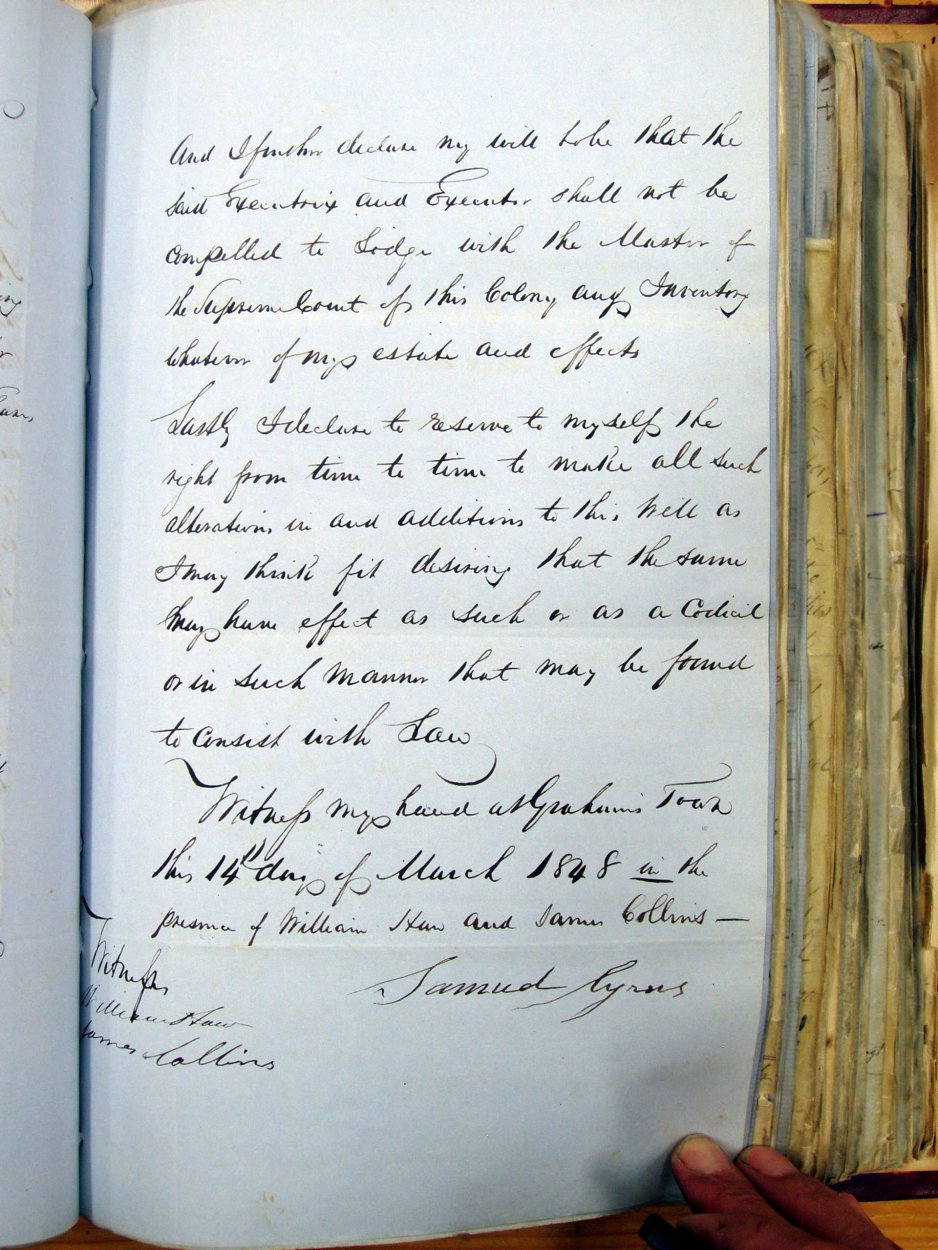 And I further declare my will to be that the
said Executrix and Executor shall not be
compelled to Lodge with the Master of
the Supreme Court of this Colony any Inventory
whatever of my estate and effects
Lastly I declare to reserve to myself the
right from time to time to make all such
alterations in and additions to this Will as
I may think fit desiring that the same
may have effect as such or as a Codicil
or in such manner that may be found
to consist with Law
Witness my hand at Grahams Town
this 14th day of March 1848 in the
presence of William Haw and James Collins —
Samuel Cyrus
Witnesses
William Haw
James Collins